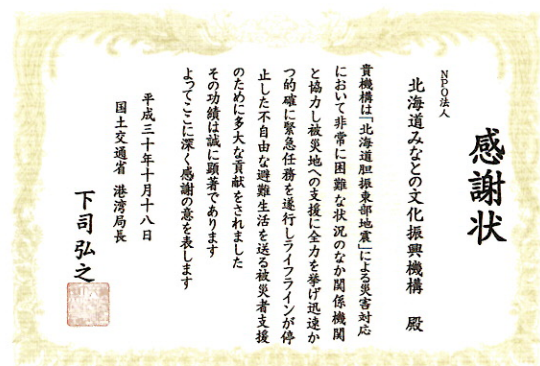 感謝状
NPO法人
北海道みなとの文化振興機構 殿
貴機構は「北海道胆振東部地震」による災害対応
において非常に困難な状況のなか関係機関
と協力し被災地への支援に全力を挙げ迅速か
つ的確に緊急任務を遂行しライフラインが停
止した不自由な避難生活を送る被災者支援
のために多大な貢献をされました
その功績は誠に顕著であります
よってここに深く感謝の意を表します
平成三十年十月十八日
国土交通省 港湾局長
下司弘之